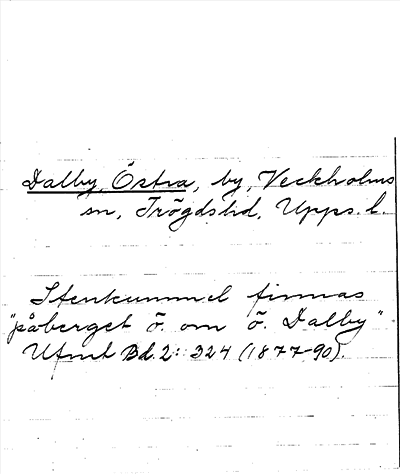 Dalby, Östra, by, Veckholms
sn, Trögds hd, Upps. l.
Stenkummel finnas
"påberget ö. om ö. Dalby"
Ufmt Bd. 2: 324 (1877-90).